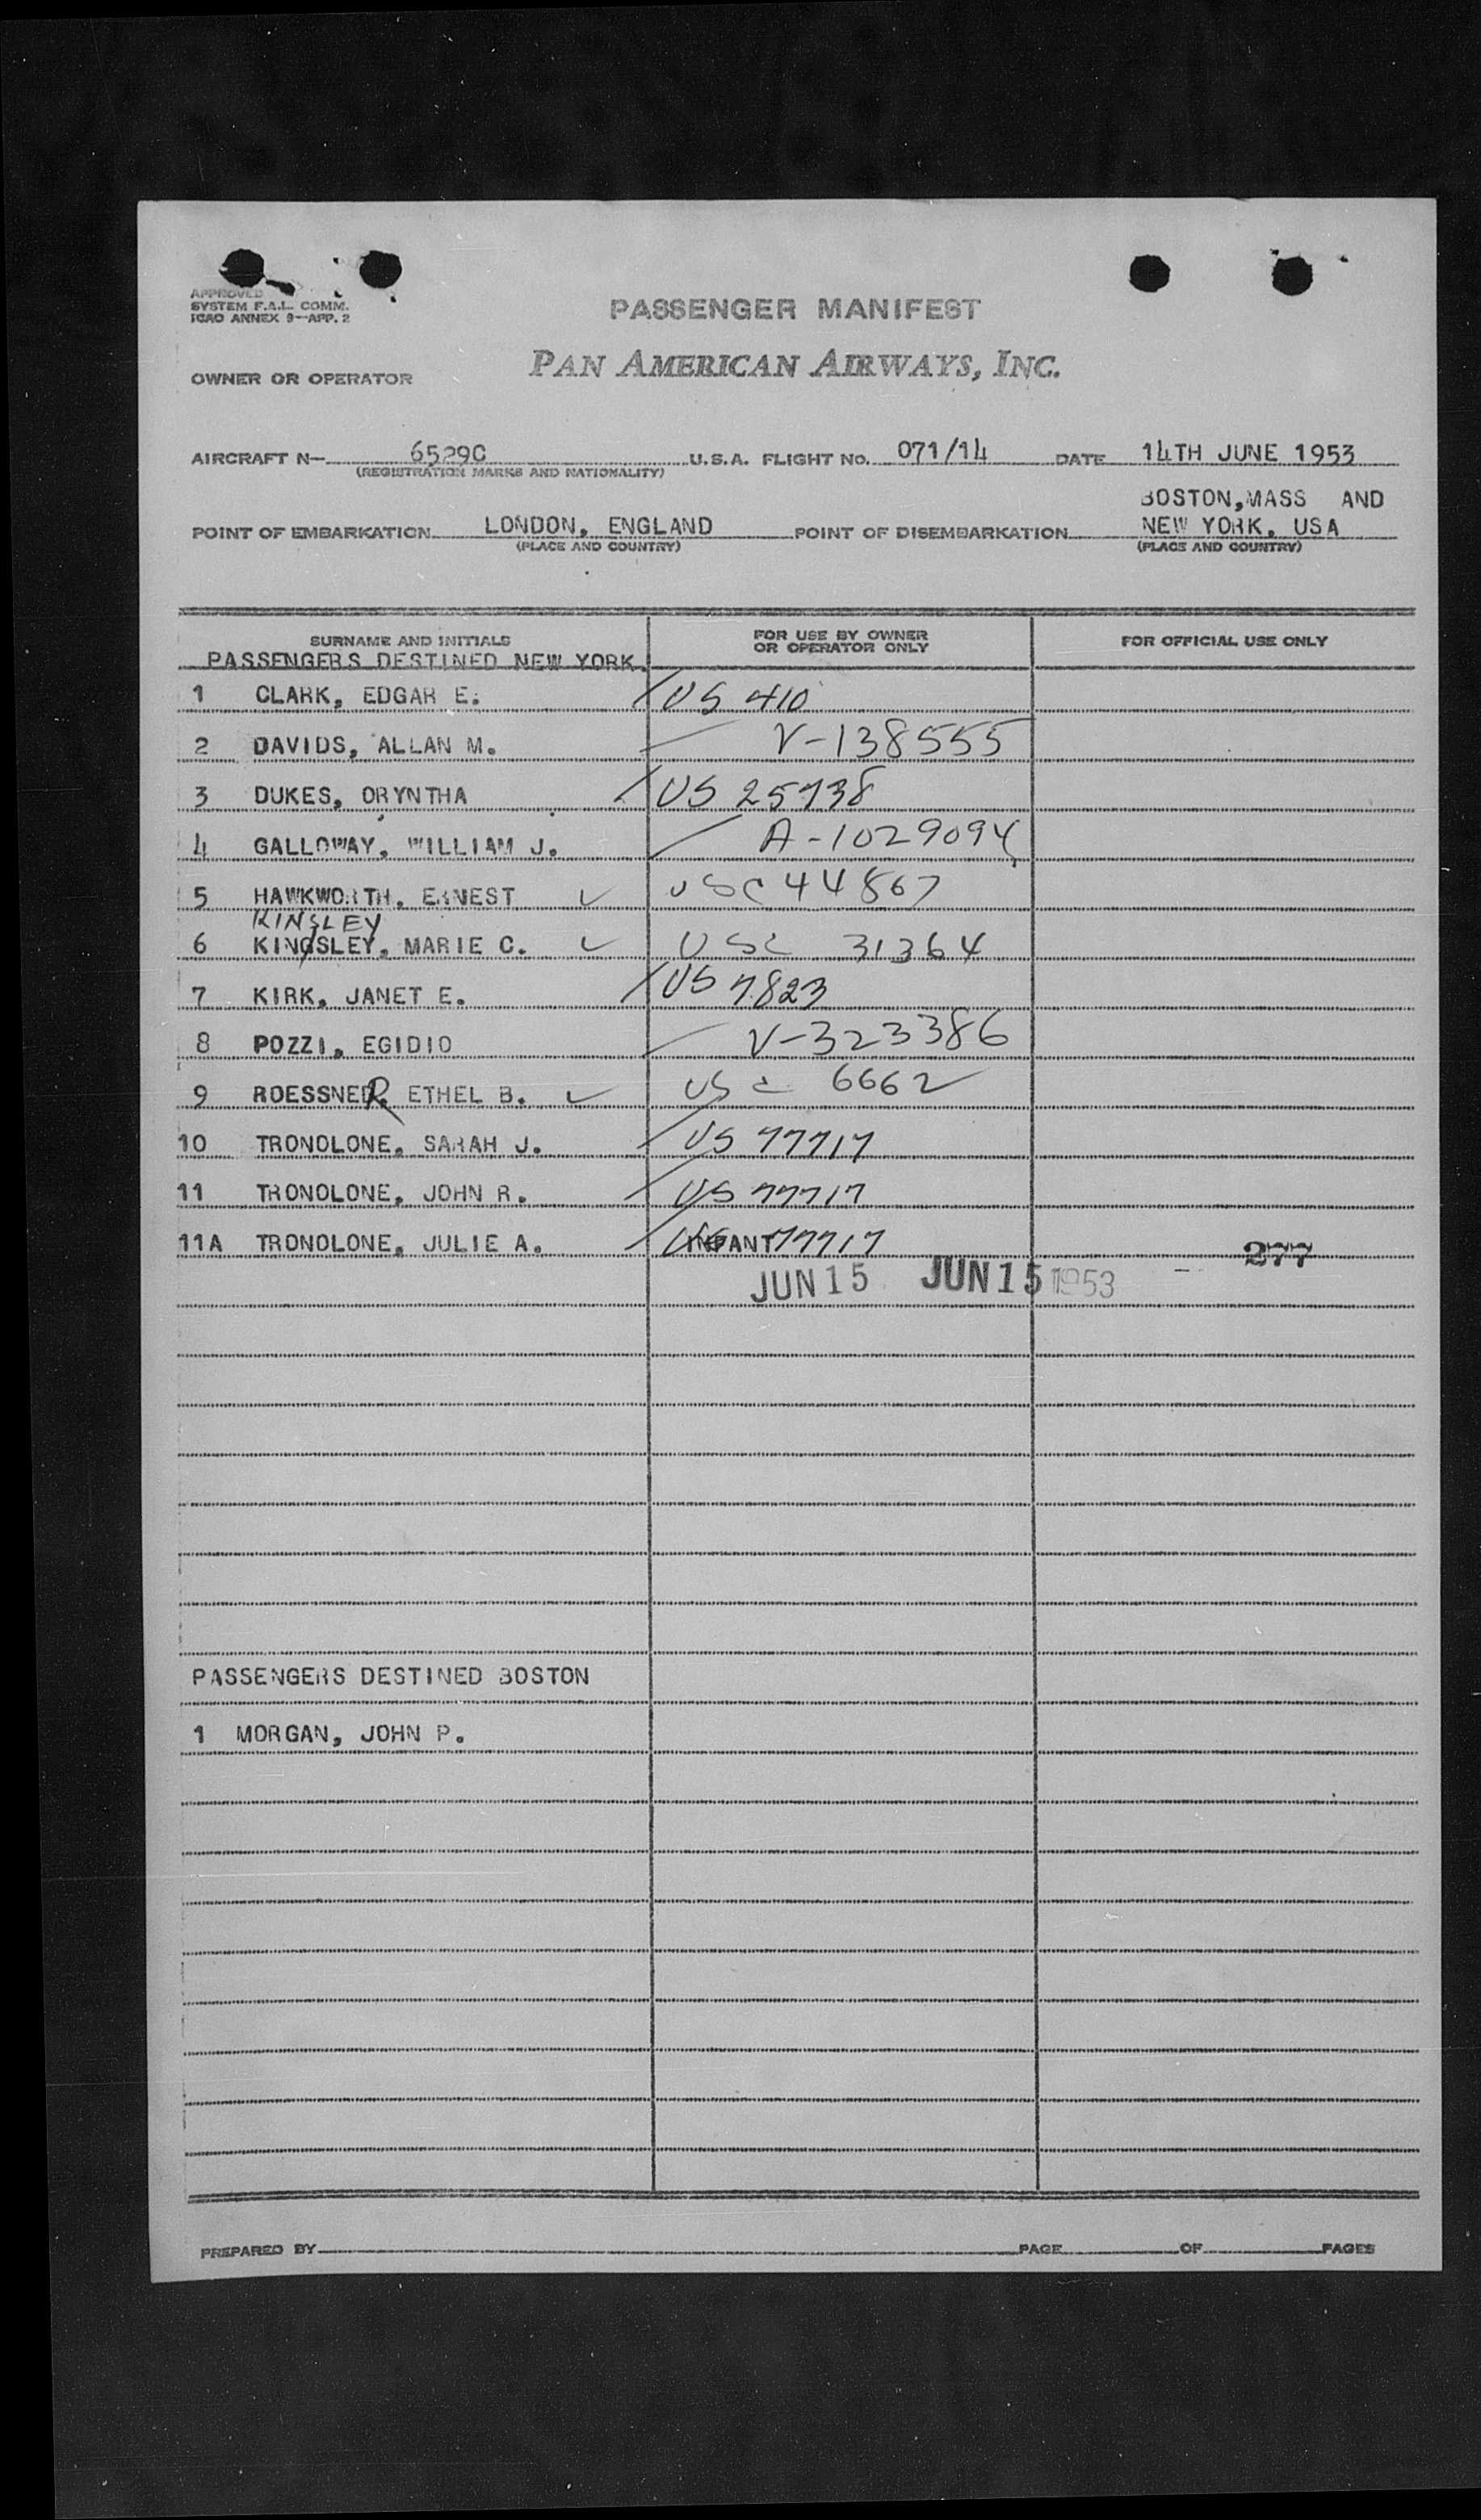 APPROVED
SYSTEM F.A.L. COMM.
ICAO ANNEX 9—APP. 2
PASSENGER MANIFEST
OWNER OR OPERATOR PAN AMERICAN AIRWAYS, INC.
AIRCRAFT N— 65290 U.S.A. FLIGHT NO. 071/14 DATE 14TH JUNE 1953
(REGISTRATION MARKS AND NATIONALITY)
BOSTON,MASS AND
POINT OF EMBARKATION LONDON, ENGLAND POINT OF DISEMBARKATION NEW YORK, USA
(PLACE AND COUNTRY) (PLACE AND COUNTRY)
SURNAME AND INITIALS FOR USE BY OWNER OR OPERATOR ONLY FOR OFFICIAL USE ONLY
PASSENGERS DESTINED NEW YORK.
1 CLARK, EDGAR E. US 410
2 DAVIDS, ALLAN M. V-138555
3 DUKES, ORYNTHA US 25738
4 GALLOWAY, WILLIAM J. A-1029094
5 HAWKWORTH, ERNEST ✓ USC 44867
KINSLEY
6 KINGSLEY, MARIE C. ✓ USC 31364
7 KIRK, JANET E. US 7823
8 POZZI, EGIDIO V-323386
9 ROESSNER, ETHEL B. ✓ USC 6662
10 TRONOLONE, SARAH J. US 77717
11 TRONOLONE, JOHN R. US 77717
11A TRONOLONE, JULIE A. INFANT US 77717 277
JUN 15 JUN 15 1953
PASSENGERS DESTINED BOSTON
1 MORGAN, JOHN P.
PREPARED BY PAGE OF PAGES